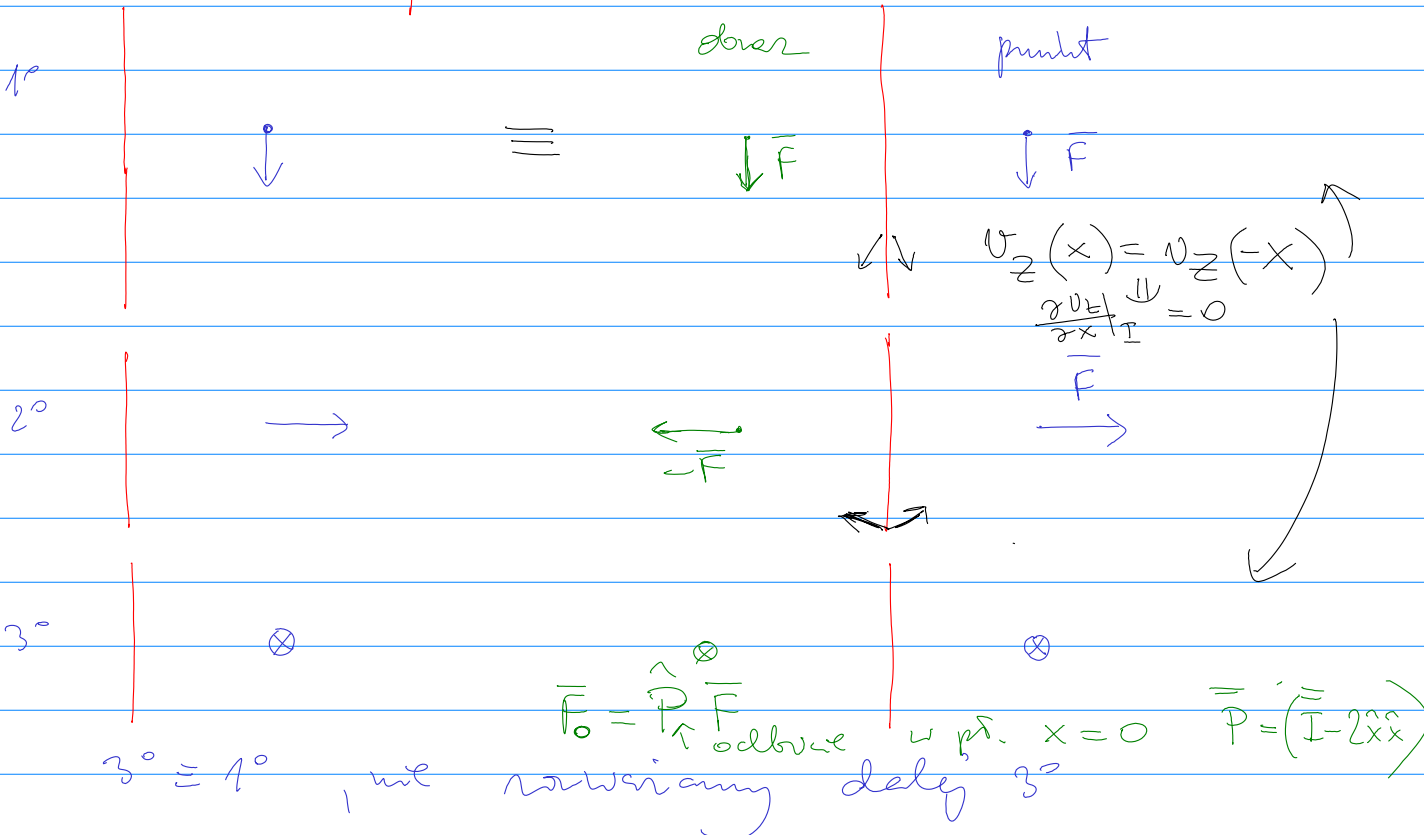 obraz punkt
1°
≡ F̄ F̄
v_z(x) = v_z(-x)
⇓
∂v_z/∂x|_I = 0
F̄
2°
-F̄
3°
F̄₀ = P̂ F̄
↑ odbicie w pł. x = 0 P̿ = (I̿ - 2x̂x̂)
3° ≡ 1°, nie rozważamy dalej 3°